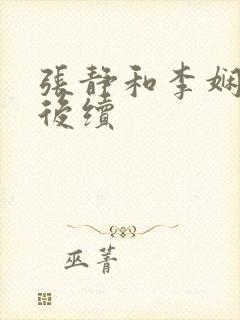 張静和李娴
後續
巫菁